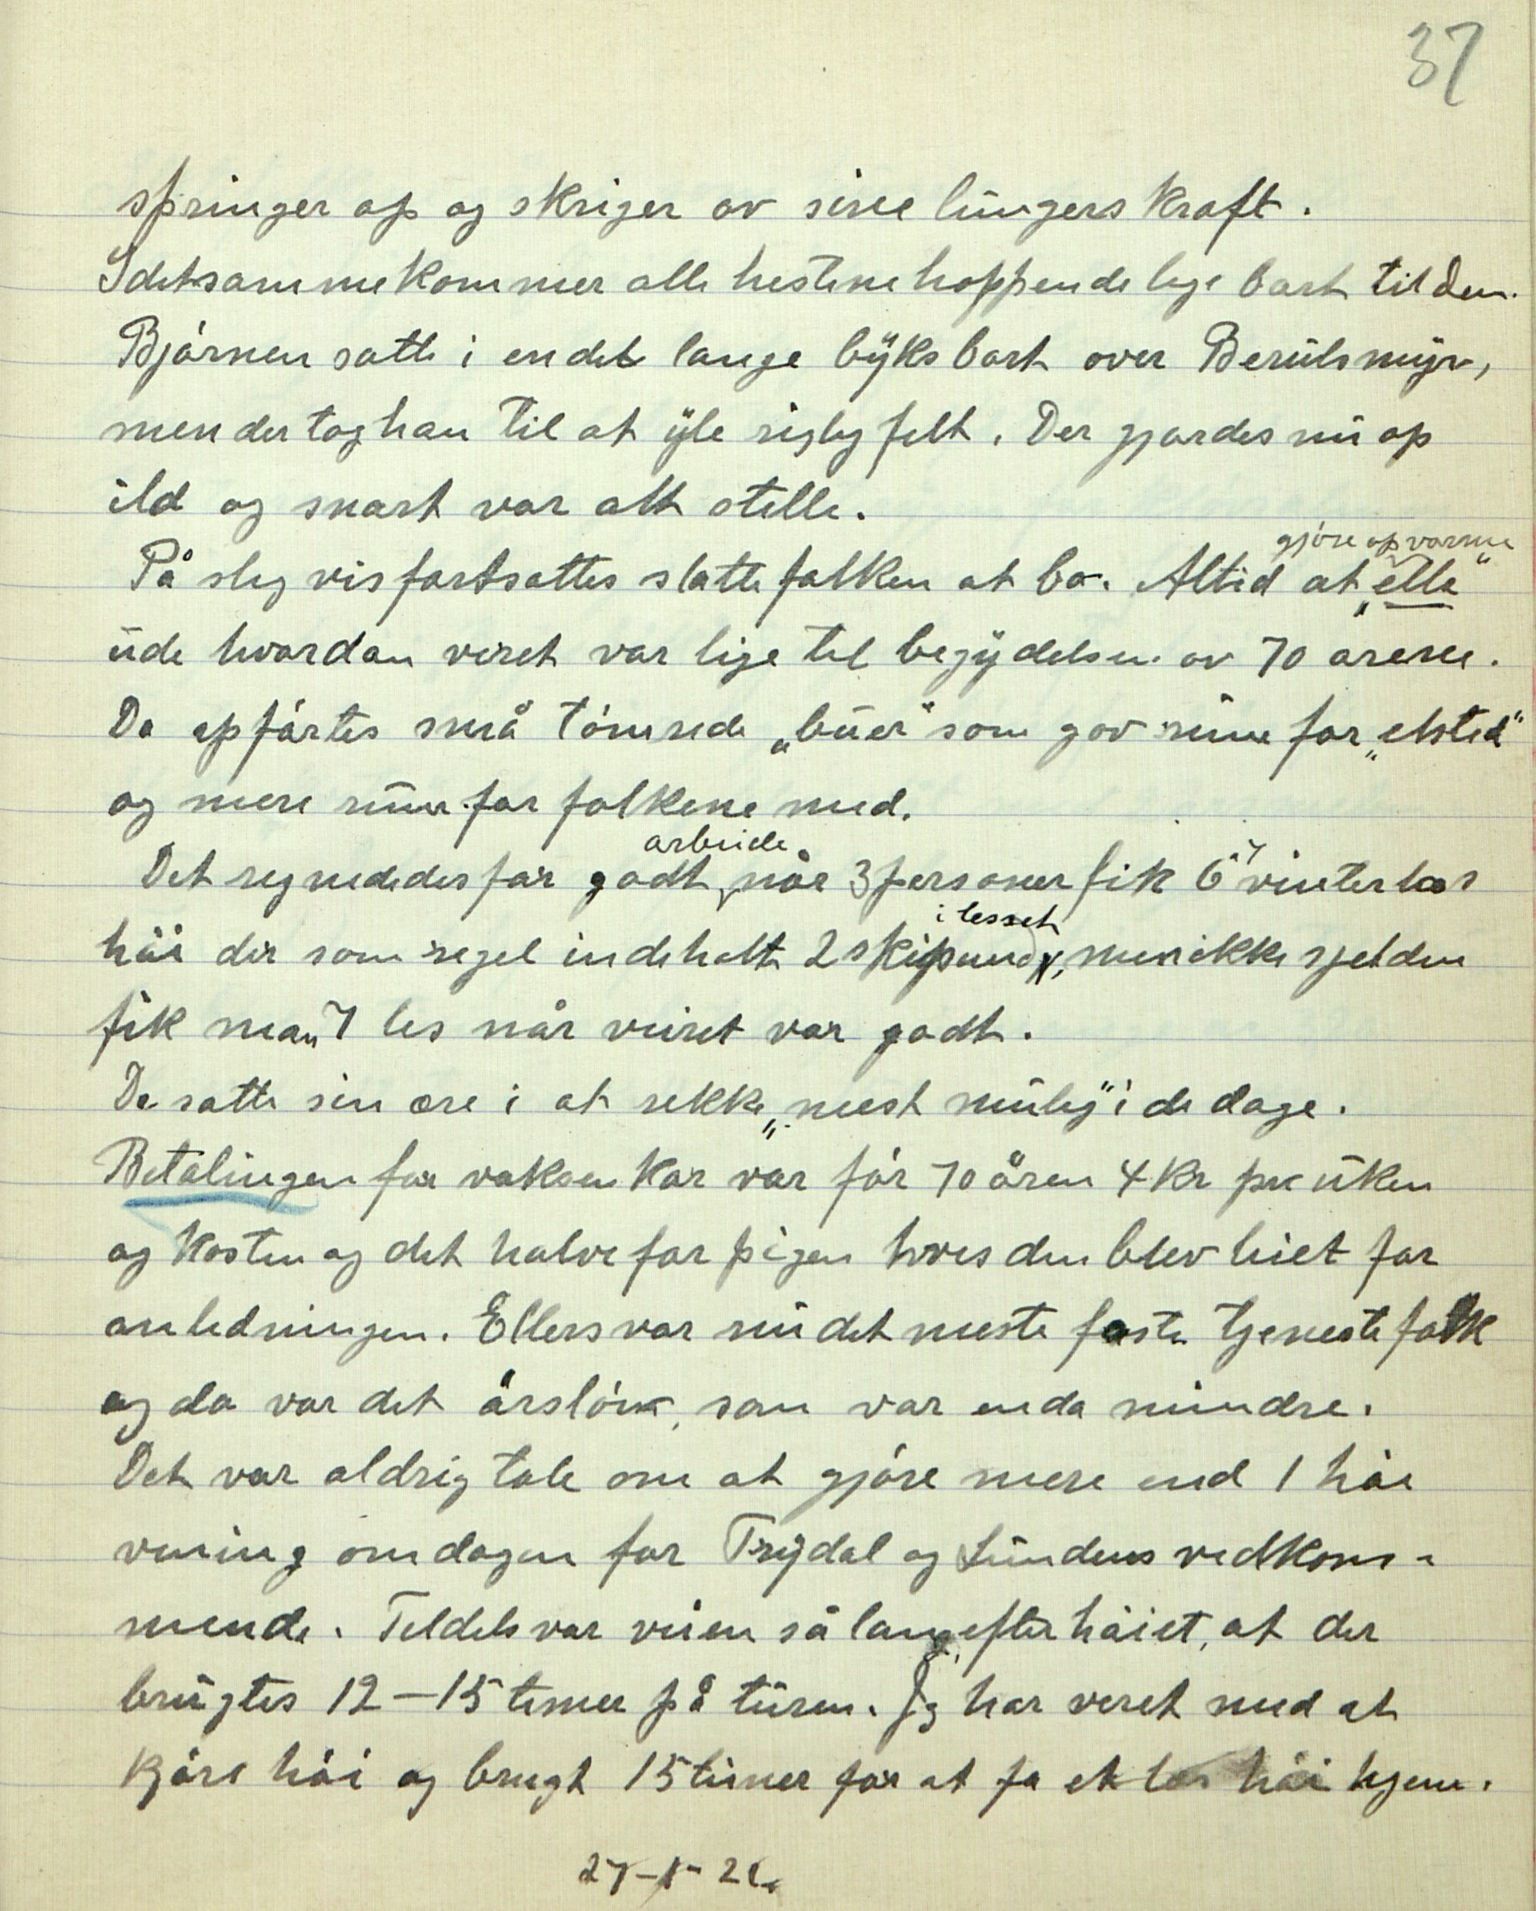 37
springer op og skriger av sine lungers kraft.
Idetsamme kommer alle hestene hoppende lige bort til den.
Bjórnen satte i endel lange byks bort over Berulsmyr,
men der tog han til at yle riglig felt. Der gjordes nu op
ild og snart var alt stille.
gjóre op varme
På slig vis fortsattes slåttefolken at bo. Altid at „elle"
ude hvordan veiret var lige til begydelsen av 70 årene.
Da opfórtes små tómrede „buer" som gav rum for „elsted"
og mere rum for folkene med.
arbeide
Det regnededes for godt, når 3 personer fik 6 vinterlæs
i lesset
hói der som regel indeholt 2 skipund, men ikke sjelden
fik man 7 les når veiret var godt.
De satte sin ære i at rekke „mest mulig" i de dage.
Betalingen for voksen kar var fór 70 åren 4 kr pr uken
og kosten og det halve for pigen hvis den blev leiet for
anledningen. Ellers var nu det meste faste tjenestefolk
og da var det årslón, som var enda mindre.
Det var aldrig tale om at gjóre mere end 1 hói
vening om dagen for Trydal og Lundens vedkom-
mende. Tildels var veien så lang efter hóiet, at der
brugtes 12-15 timer på turen. Jg har veret med at
kjóre hói og brugt 15 timer for at få et les hói hjem.